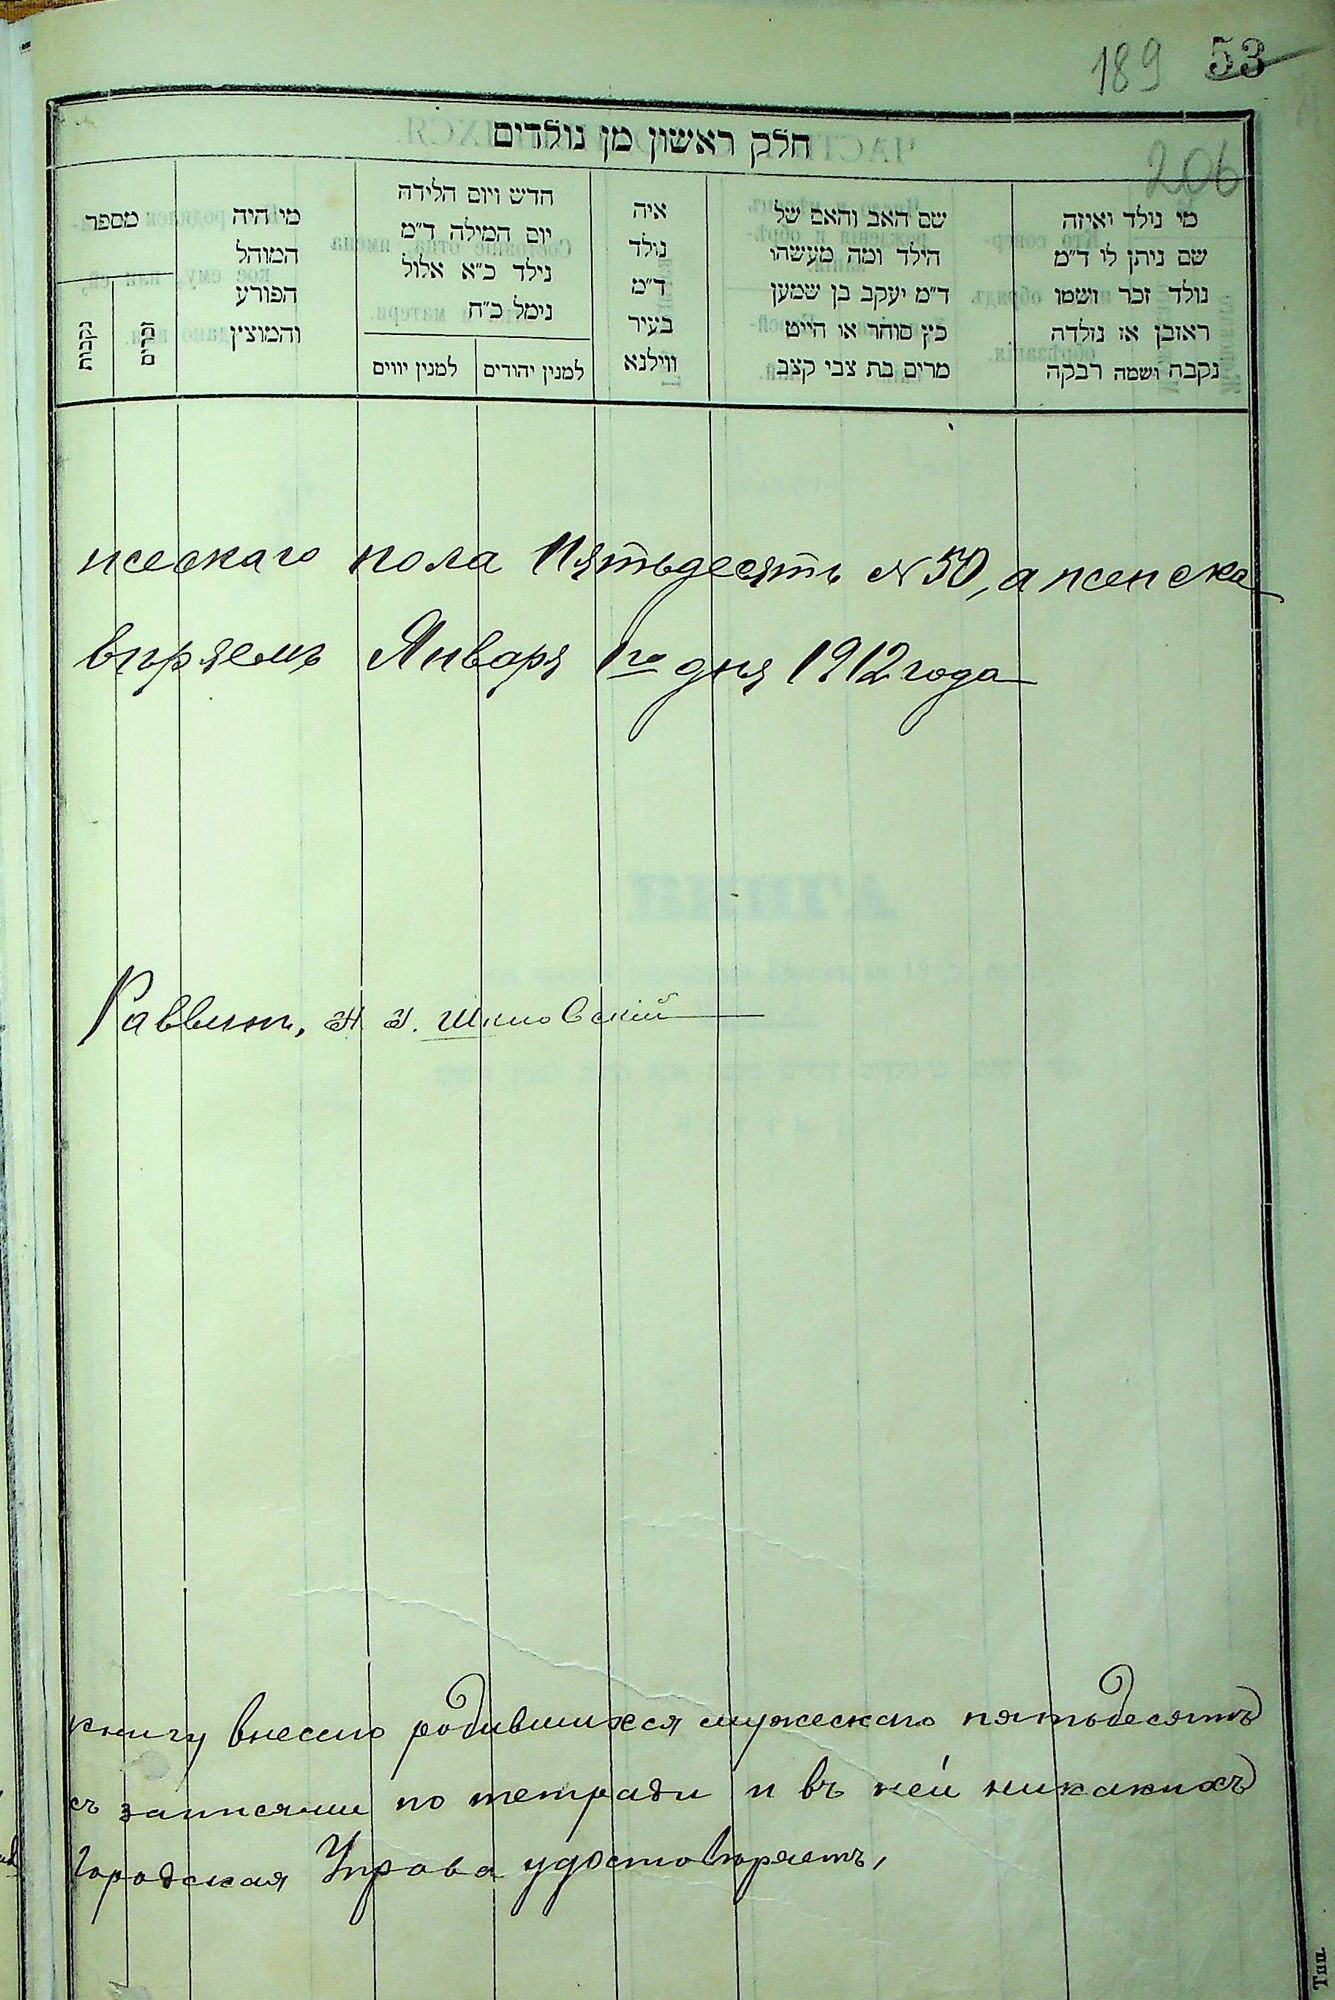 189 53
206
חלק ראשון מן נולדים
מי נולד ואיזה
שם ניתן לו ד"מ
נולד זכר ושמו
ראובן או נולדה
נקבה ושמה רבקה
שם האב והאם של
הילד ומה מעשהו
ד"מ יעקב בן שמעון
כץ סוחר או חייט
מרים בת צבי קצב
איה
נולד
ד"מ
בעיר
ווילנא
חדש ויום הלידה
יום המילה ד"מ
נילד כ"א אלול
נימל כ"ח
למנין יהודים
למנין יווים
מי היה
המוהל
הפורע
והמוצץ
מספר
זכרים
נקבות
жескаго пола Пятьдесятъ №50, а женска
вѣряемъ Января 1го дня 1912 года
Раввинъ, Шкловскій
книгу внесено родившихся мужескаго пятьдесятъ
съ записями по тетради и въ ней никакихъ
Городская Управа удостовѣряетъ,
Тип.